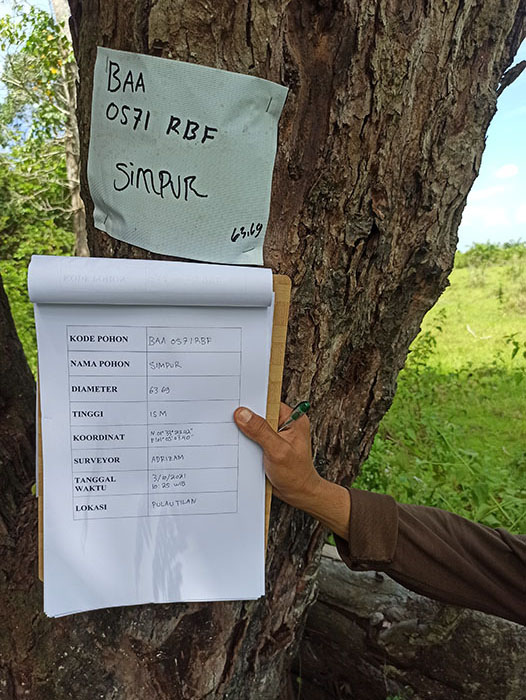 BAA
0571 RBF
SIMPUR
63,69
KODE POHON BAA 0571RBF
NAMA POHON SIMPUR
DIAMETER 63,69
TINGGI 15 M
KOORDINAT
SURVEYOR
TANGGAL 3/6/2021
WAKTU 10:25 WIB
LOKASI PULAU TILAN